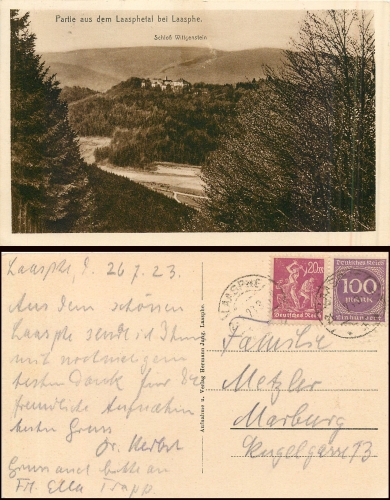 Partie aus dem Laasphetal bei Laasphe.
Schloß Wittgenstein
Laasphe, d. 26.7.23.
Aus dem schönen
Laasphe sende ich Ihnen
mit nochmaligem
besten Dank für die
freundliche Aufnahme
besten Gruss
Dr. Herbst
Gruss auch bitte an
Frl. Ella Trapp.
Aufnahme u. Verlag Hermann Jung, Laasphe.
LAASPHE
20M
Deutsches Reich
Deutsches Reich
100
MARK
Familie
Metzler
Marburg